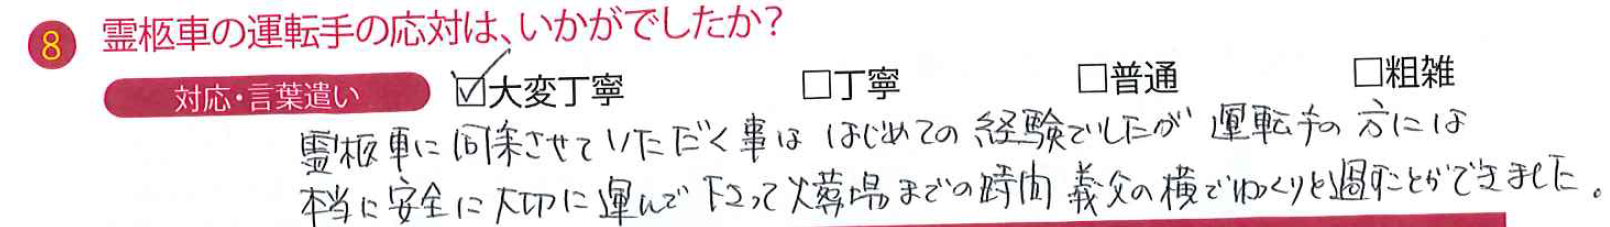 8 霊柩車の運転手の応対は、いかがでしたか?
対応・言葉遣い ☑大変丁寧 □丁寧 □普通 □粗雑
霊柩車に同乗させていただく事は はじめての 経験でしたが 運転手の 方には
本当に安全に大切に運んで下さって火葬場までの時間 義父の横でゆっくりと過すことができました。